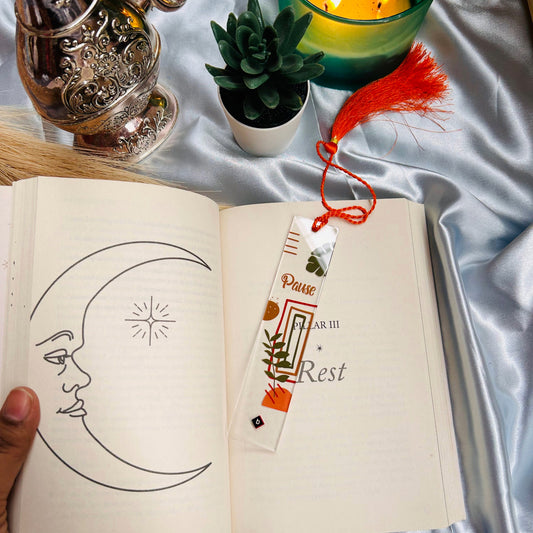 Pause
PILLAR III
Rest
6